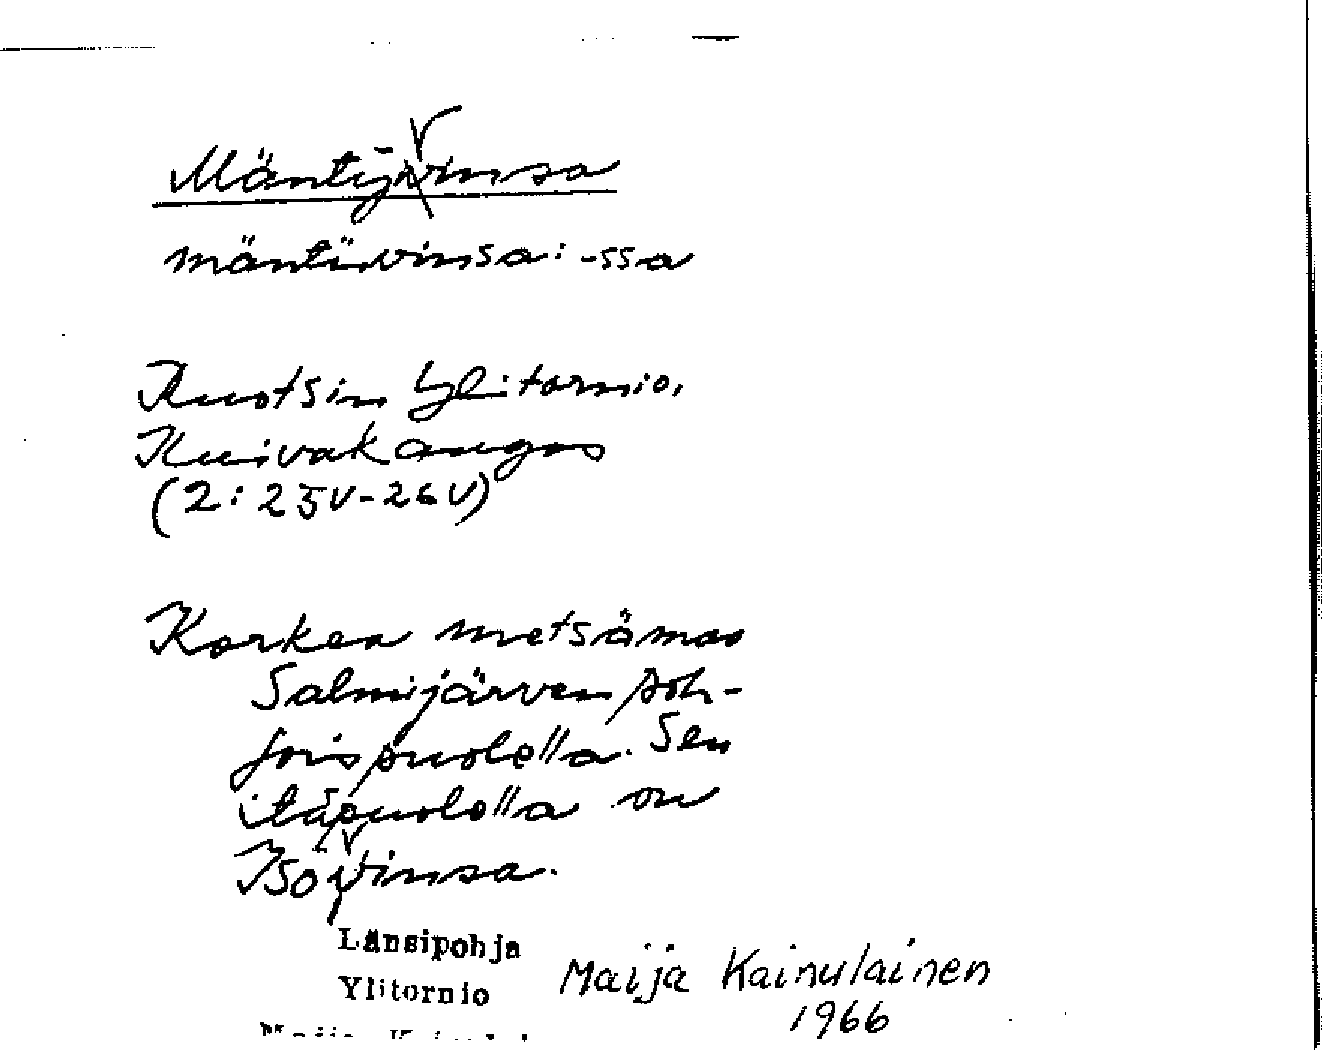 Mäntyvinsa
mäntüvinsa: -ssa
Ruotsin Ylitornio,
Kuivakangas
(2: 25V-26V)
Korkea metsämaa
Salmijärven poh-
joispuolella. Sen
itäpuolella on
Isovinsa.
Länsipohja
Ylitornio
Maija Kainulainen
1966